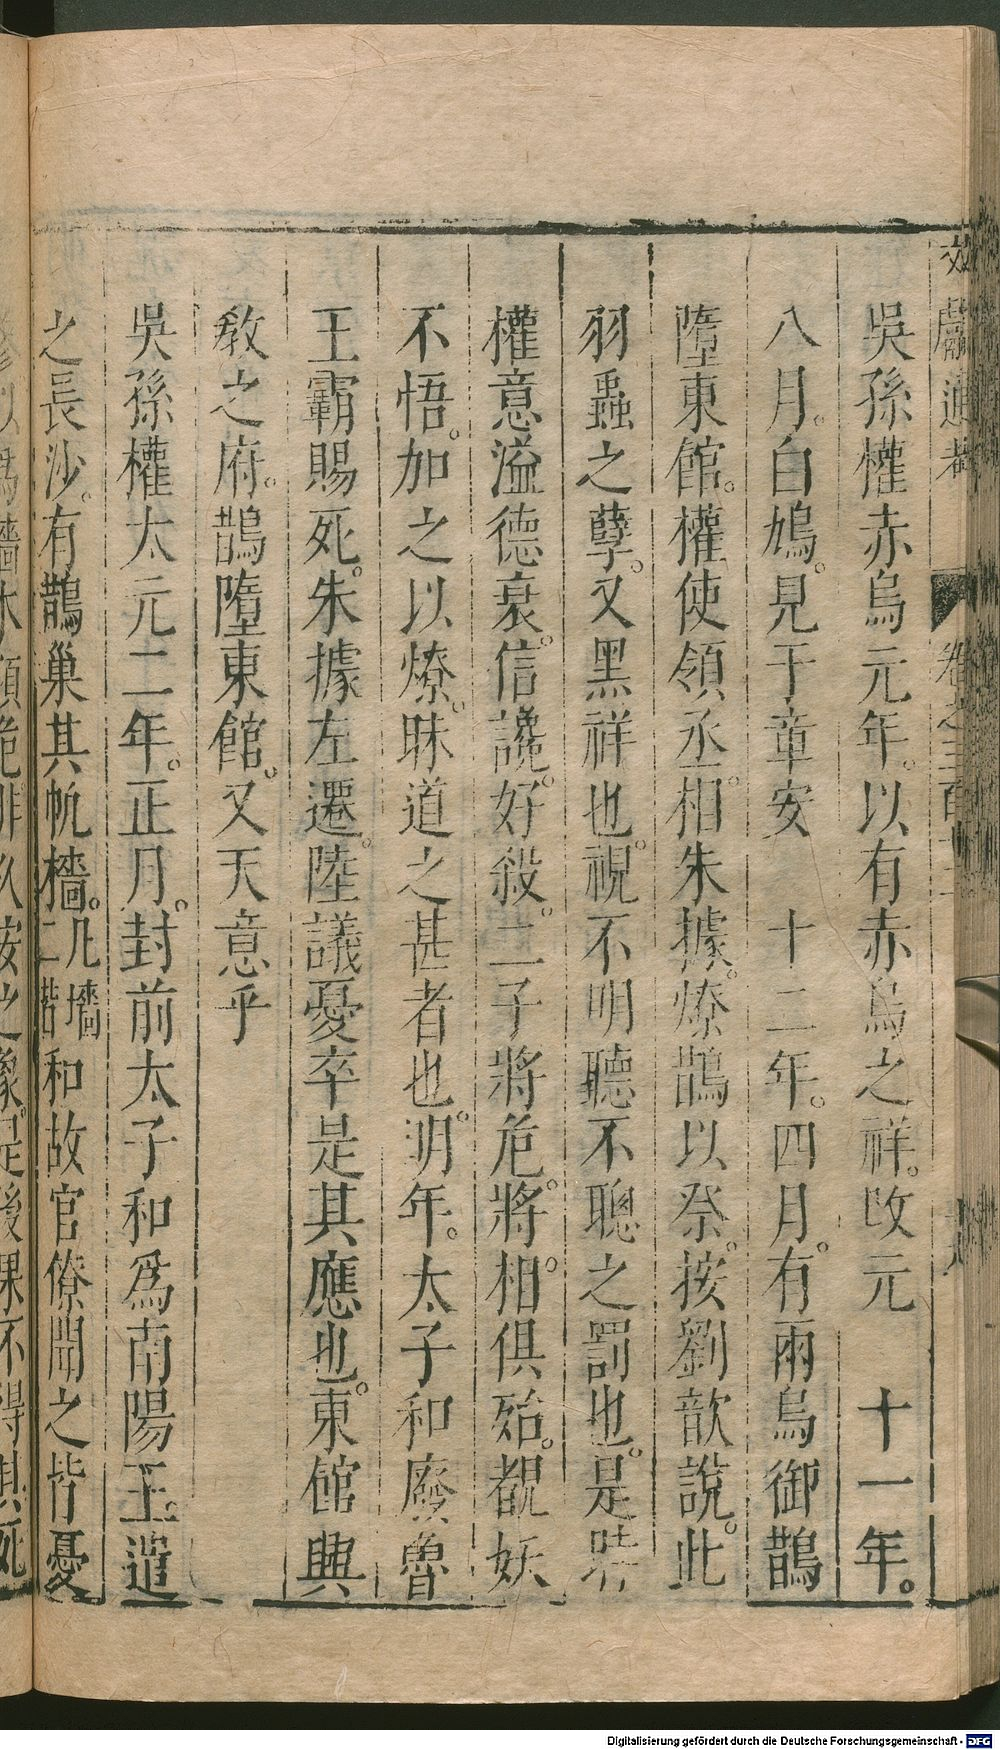 文獻通考　卷之三百十二
吳孫權赤烏元年。以有赤烏之祥。改元　十一年。
八月。白鳩。見于章安　十二年。四月。有兩烏御鵲
墮東館。權使領丞相。朱據。燎鵲以祭。按劉歆說。此
羽蟲之孽。又黑祥也。視不明聽不聰之罰也。是時
權意溢德衰。信讒。好殺。二子將危。將相。俱殆。覩妖
不悟。加之以燎。昧道之甚者也。明年。太子和廢。魯
王霸賜死。朱據左遷。陸議憂卒是其應也。東館興
教之府。鵲墮東館。又天意乎
吳孫權太元二年。正月。封前太子和爲南陽王遣
之長沙。有鵲巢其帆檣。凡墻二諧和故官僚聞之皆憂
Digitalisierung gefördert durch die Deutsche Forschungsgemeinschaft - DFG